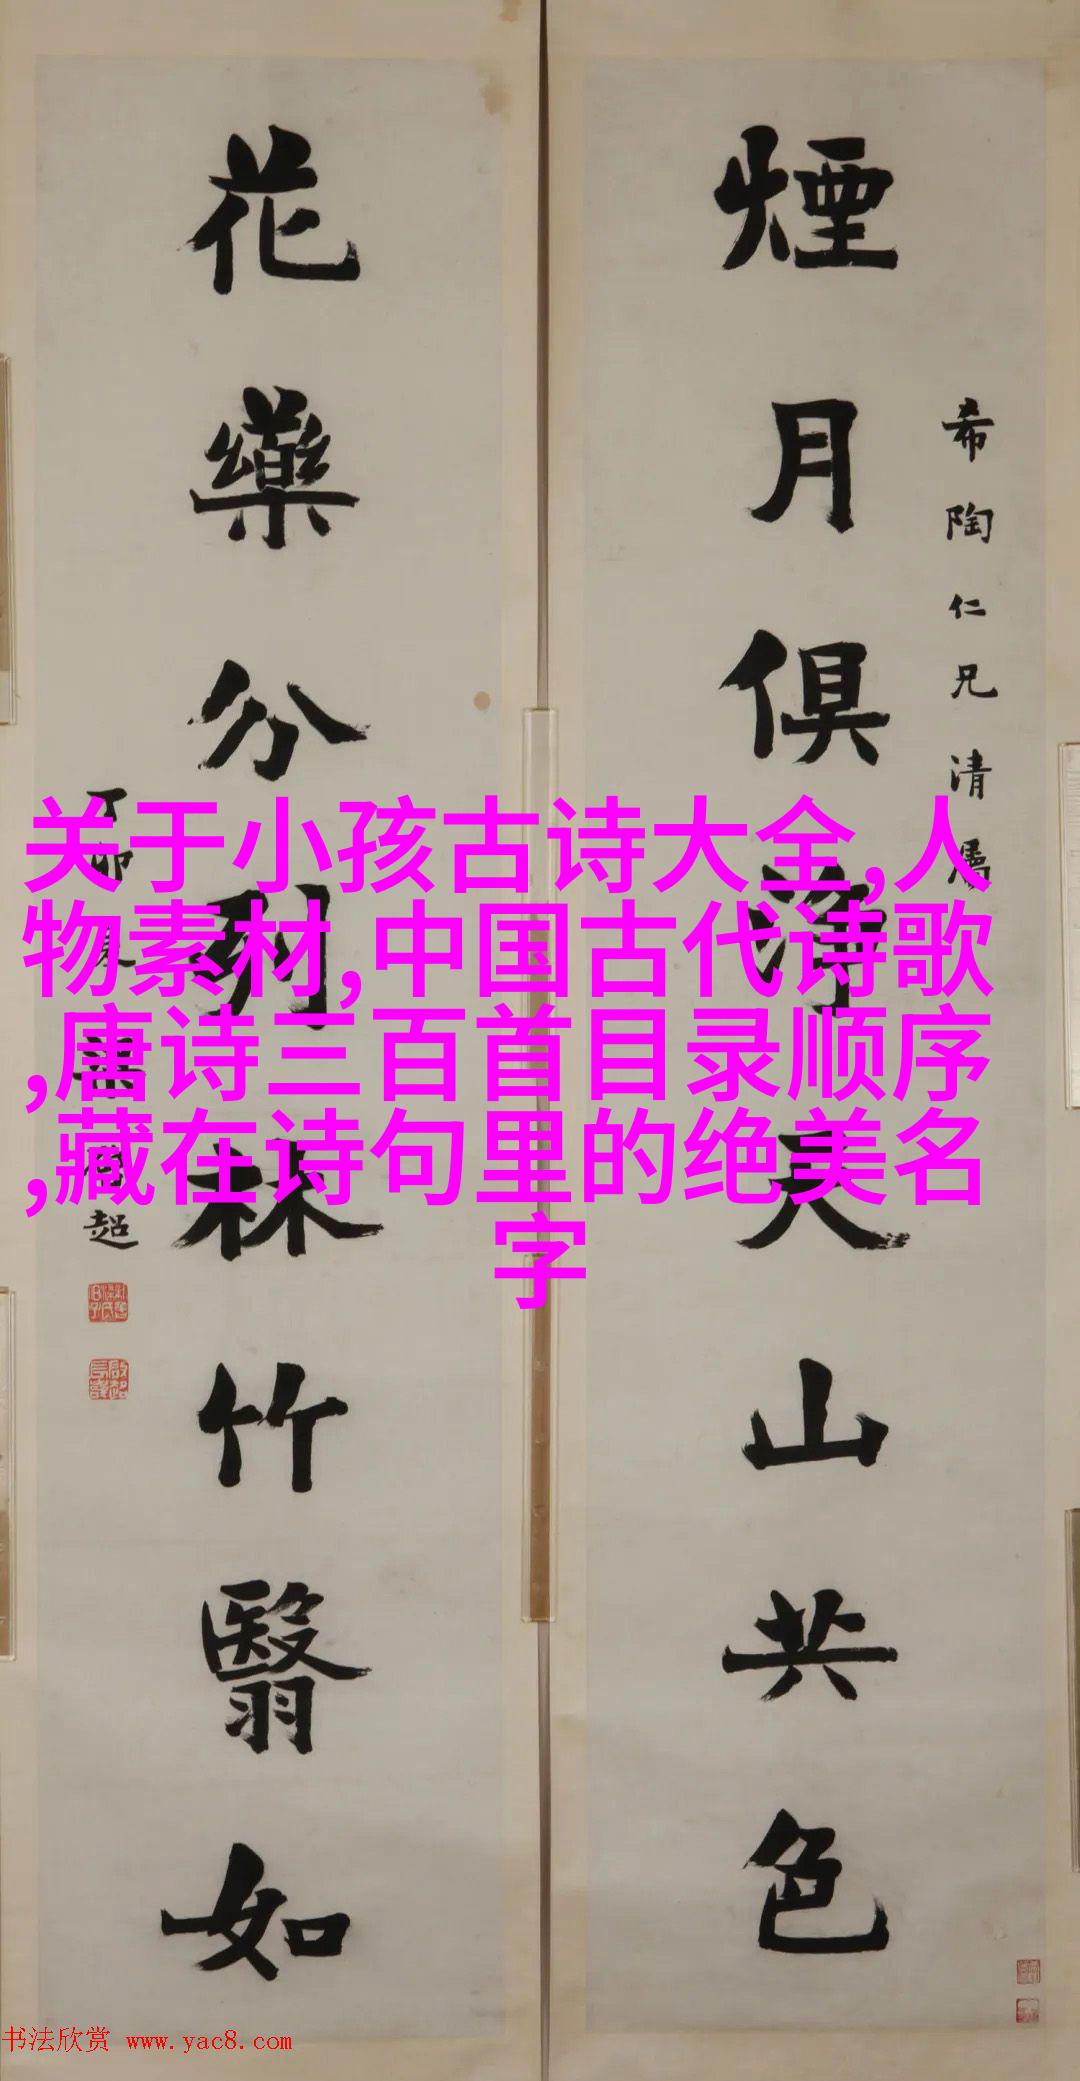 煙月俱淨天山共色
希陶仁兄清屬
花藥分列林竹翳如
丁卯
梁啟超
关于小孩古诗大全,人
物素材,中国古代诗歌
,唐诗三百首目录顺序
,藏在诗句里的绝美名
字
书法欣赏 www.yac8.com